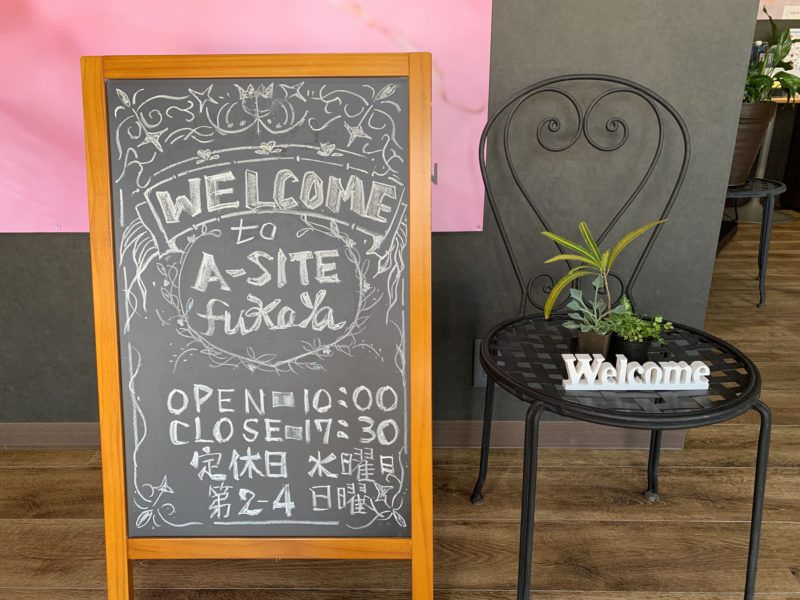 WELCOME
to
A-SITE
fuKaYa
OPEN 10:00
CLOSE 17:30
定休日 水曜日
第2-4 日曜
Welcome